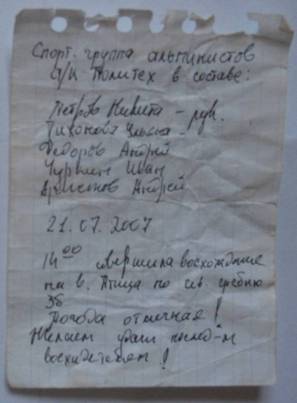 Спорт. группа альпинистов
с/к Политех в составе:
Петров Никита - рук.
Тихонова Ульяна -
Федоров Андрей
Чуркин Иван
Андрей
21.07.2007
14⁰⁰ совершила восхождение
на в. Птица по св. гребню
3Б
Погода отличная!
Желаем удачи послед-м
восходителям!